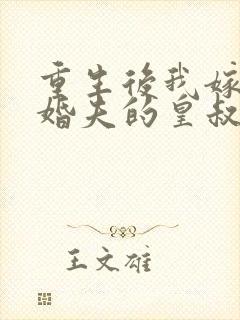 重生後我嫁
婚夫的皇叔
王文雄